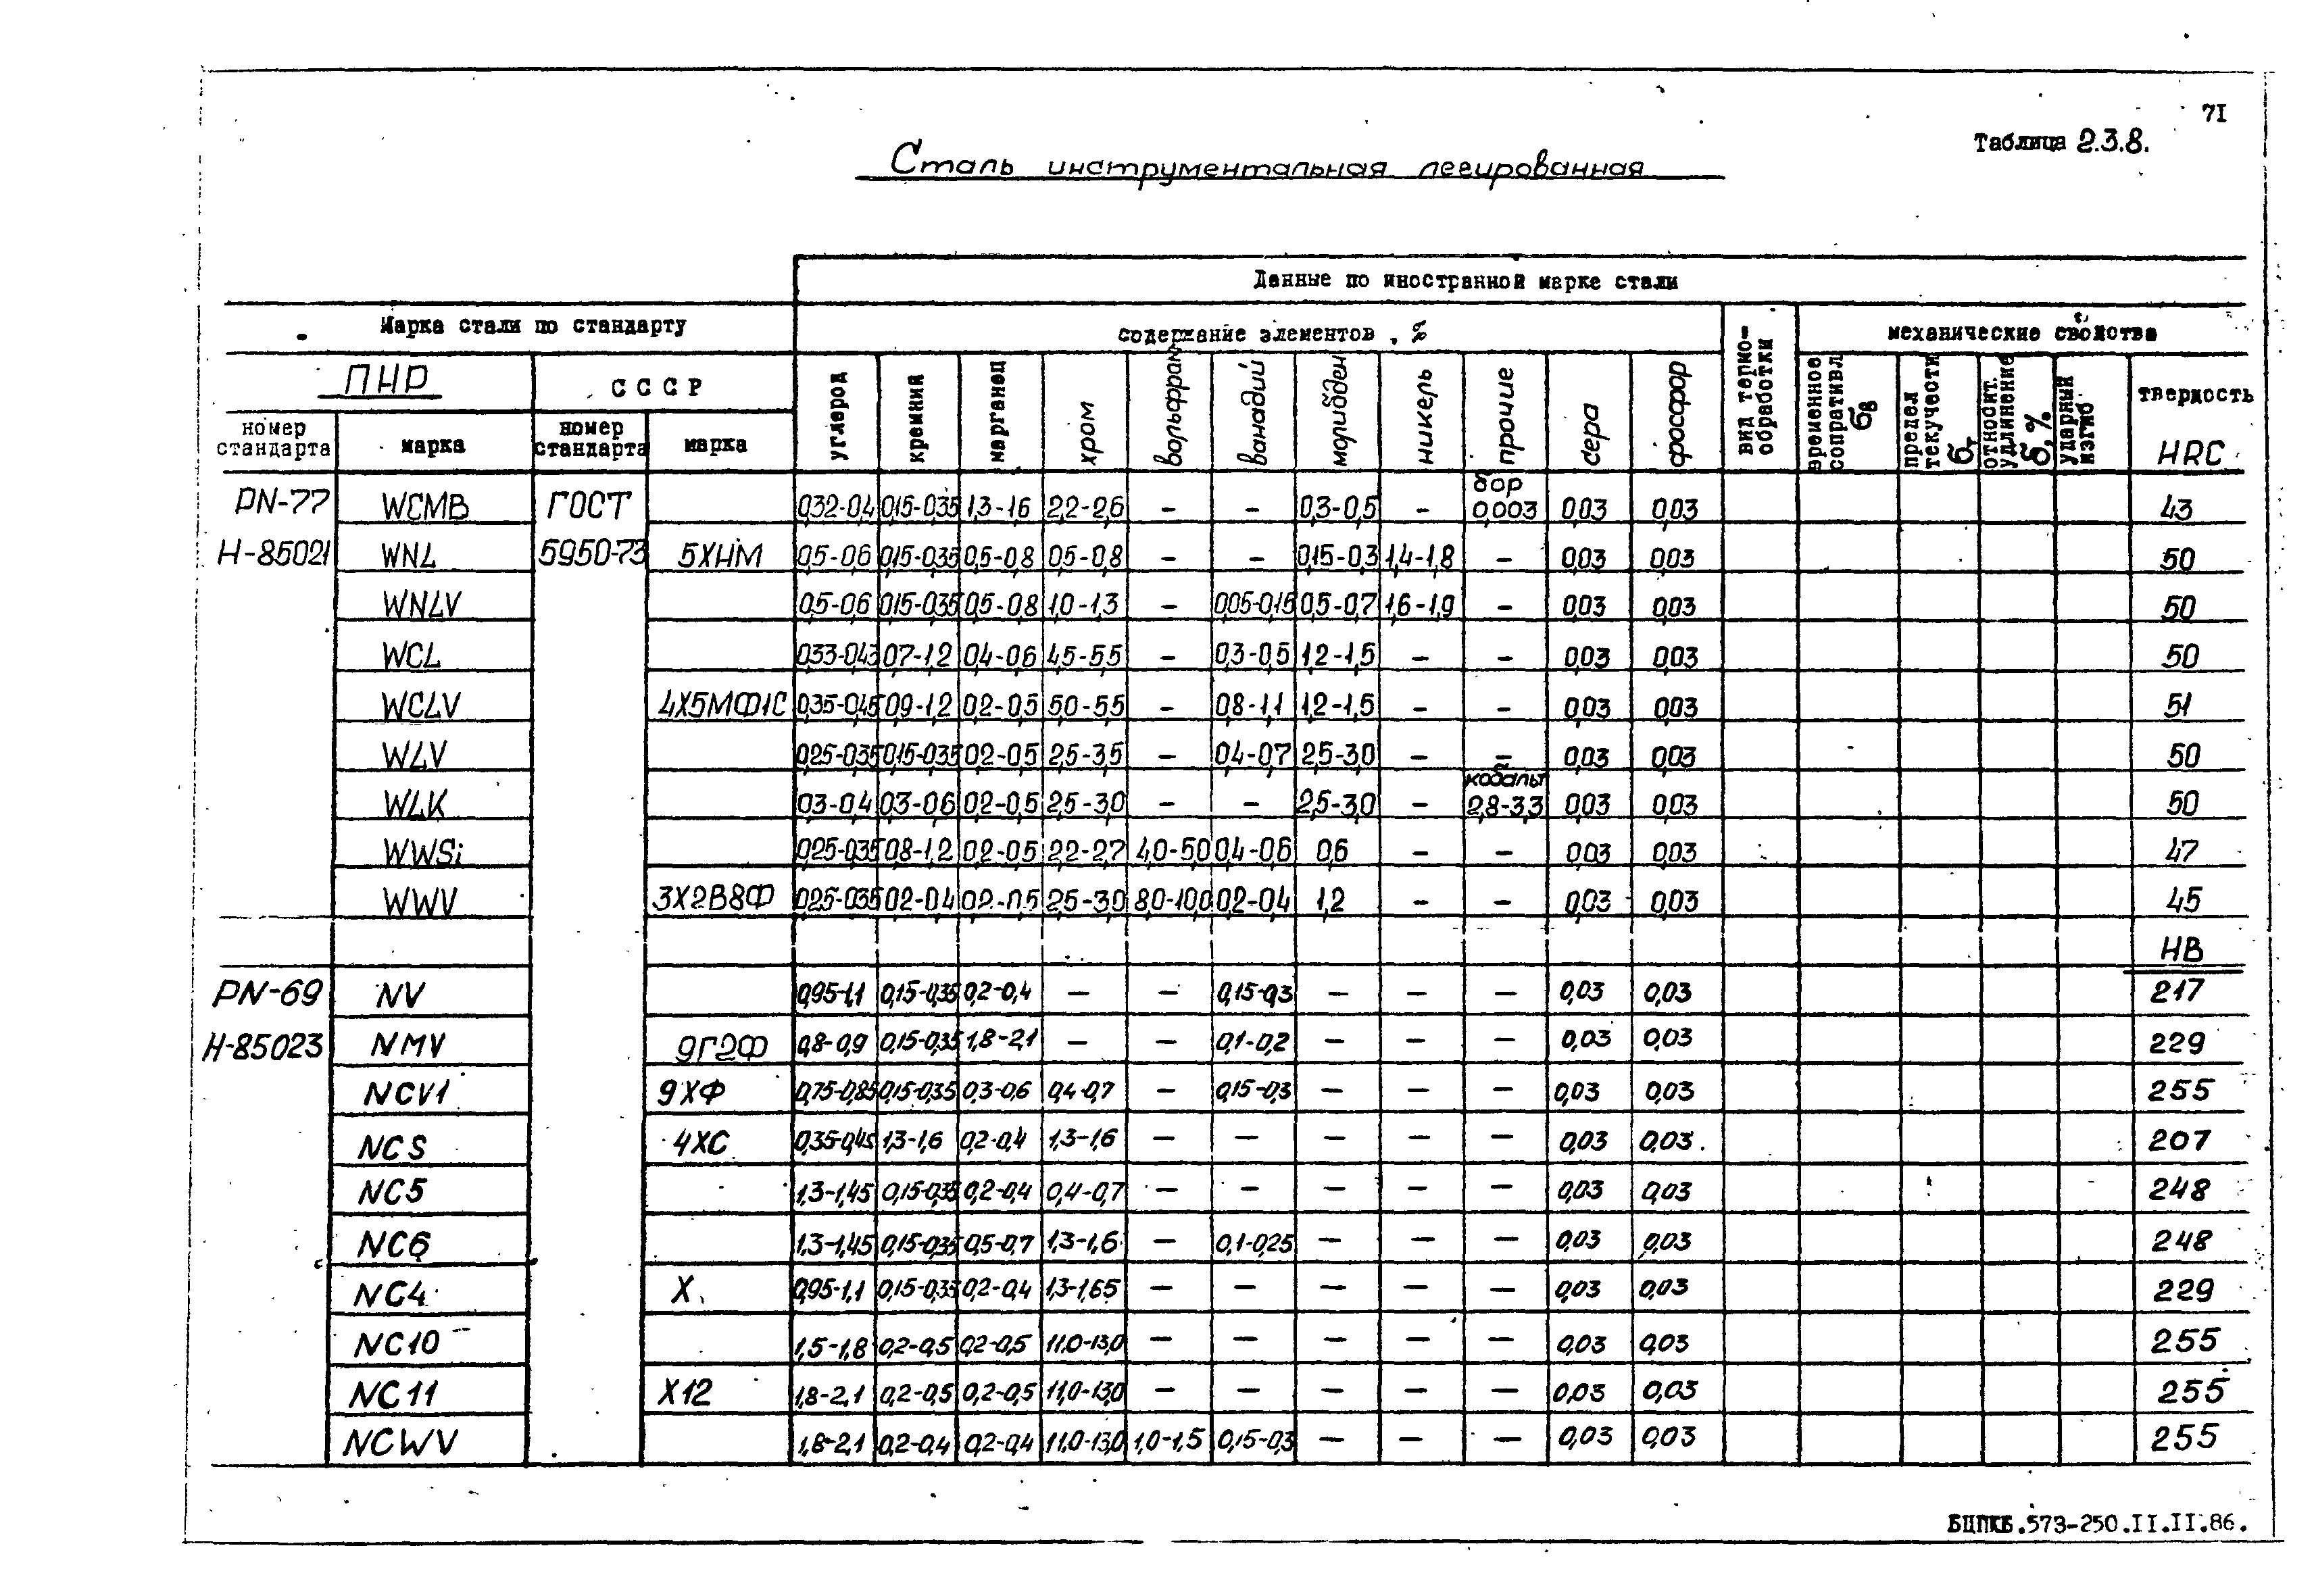 71
Таблица 2.3.8.
Сталь инструментальная легированная
Данные по иностранной марке стали
Марка стали по стандарту
содержание элементов , %
вид термо-
обработки
механические свойства
ПНР
СССР
углерод
кремний
марганец
хром
вольфрам
ванадий
молибден
никель
прочие
сера
фосфор
временное
сопротивл
σв
предел
текучести
σт
относит.
удлинение
δ, %
ударный
изгиб
твердость
HRC
номер
стандарта
марка
номер
стандарта
марка
PN-77 WCMB ГОСТ 0,32-0,4 0,15-0,35 1,3-1,6 2,2-2,6 – – 0,3-0,5 – бор 0,003 0,03 0,03 43
H-85021 WNL 5950-73 5ХНМ 0,5-0,6 0,15-0,35 0,5-0,8 0,5-0,8 – – 0,15-0,3 1,4-1,8 – 0,03 0,03 50
WNLV 0,5-0,6 0,15-0,35 0,5-0,8 1,0-1,3 – 0,05-0,15 0,5-0,7 1,6-1,9 – 0,03 0,03 50
WCL 0,33-0,43 0,7-1,2 0,4-0,6 4,5-5,5 – 0,3-0,5 1,2-1,5 – – 0,03 0,03 50
WCLV 4Х5МФ1С 0,35-0,45 0,9-1,2 0,2-0,5 5,0-5,5 – 0,8-1,1 1,2-1,5 – – 0,03 0,03 51
WLV 0,25-0,35 0,15-0,35 0,2-0,5 2,5-3,5 – 0,4-0,7 2,5-3,0 – – 0,03 0,03 50
WLK 0,3-0,4 0,3-0,6 0,2-0,5 2,5-3,0 – – 2,5-3,0 – кобальт 2,8-3,3 0,03 0,03 50
WWSi 0,25-0,35 0,8-1,2 0,2-0,5 2,2-2,7 4,0-5,0 0,4-0,6 0,6 – – 0,03 0,03 47
WWV 3Х2В8Ф 0,25-0,35 0,2-0,4 0,2-0,5 2,5-3,0 8,0-10,0 0,2-0,4 1,2 – – 0,03 0,03 45
HB
PN-69 NV 0,95-1,1 0,15-0,35 0,2-0,4 – – 0,15-0,3 – – – 0,03 0,03 217
H-85023 NMV 9Г2Ф 0,8-0,9 0,15-0,35 1,8-2,1 – – 0,1-0,2 – – – 0,03 0,03 229
NCV1 9ХФ 0,75-0,85 0,15-0,35 0,3-0,6 0,4-0,7 – 0,15-0,3 – – – 0,03 0,03 255
NCS 4ХС 0,35-0,45 1,3-1,6 0,2-0,4 1,3-1,6 – – – – – 0,03 0,03 207
NC5 1,3-1,45 0,15-0,35 0,2-0,4 0,4-0,7 – – – – – 0,03 0,03 248
NC6 1,3-1,45 0,15-0,35 0,5-0,7 1,3-1,6 – 0,1-0,25 – – – 0,03 0,03 248
NC4 Х 0,95-1,1 0,15-0,35 0,2-0,4 1,3-1,65 – – – – – 0,03 0,03 229
NC10 1,5-1,8 0,2-0,5 0,2-0,5 11,0-13,0 – – – – – 0,03 0,03 255
NC11 Х12 1,8-2,1 0,2-0,5 0,2-0,5 11,0-13,0 – – – – – 0,03 0,03 255
NCWV 1,8-2,1 0,2-0,4 0,2-0,4 11,0-13,0 1,0-1,5 0,15-0,3 – – – 0,03 0,03 255
БЦПКБ.573-250.II.II.86.